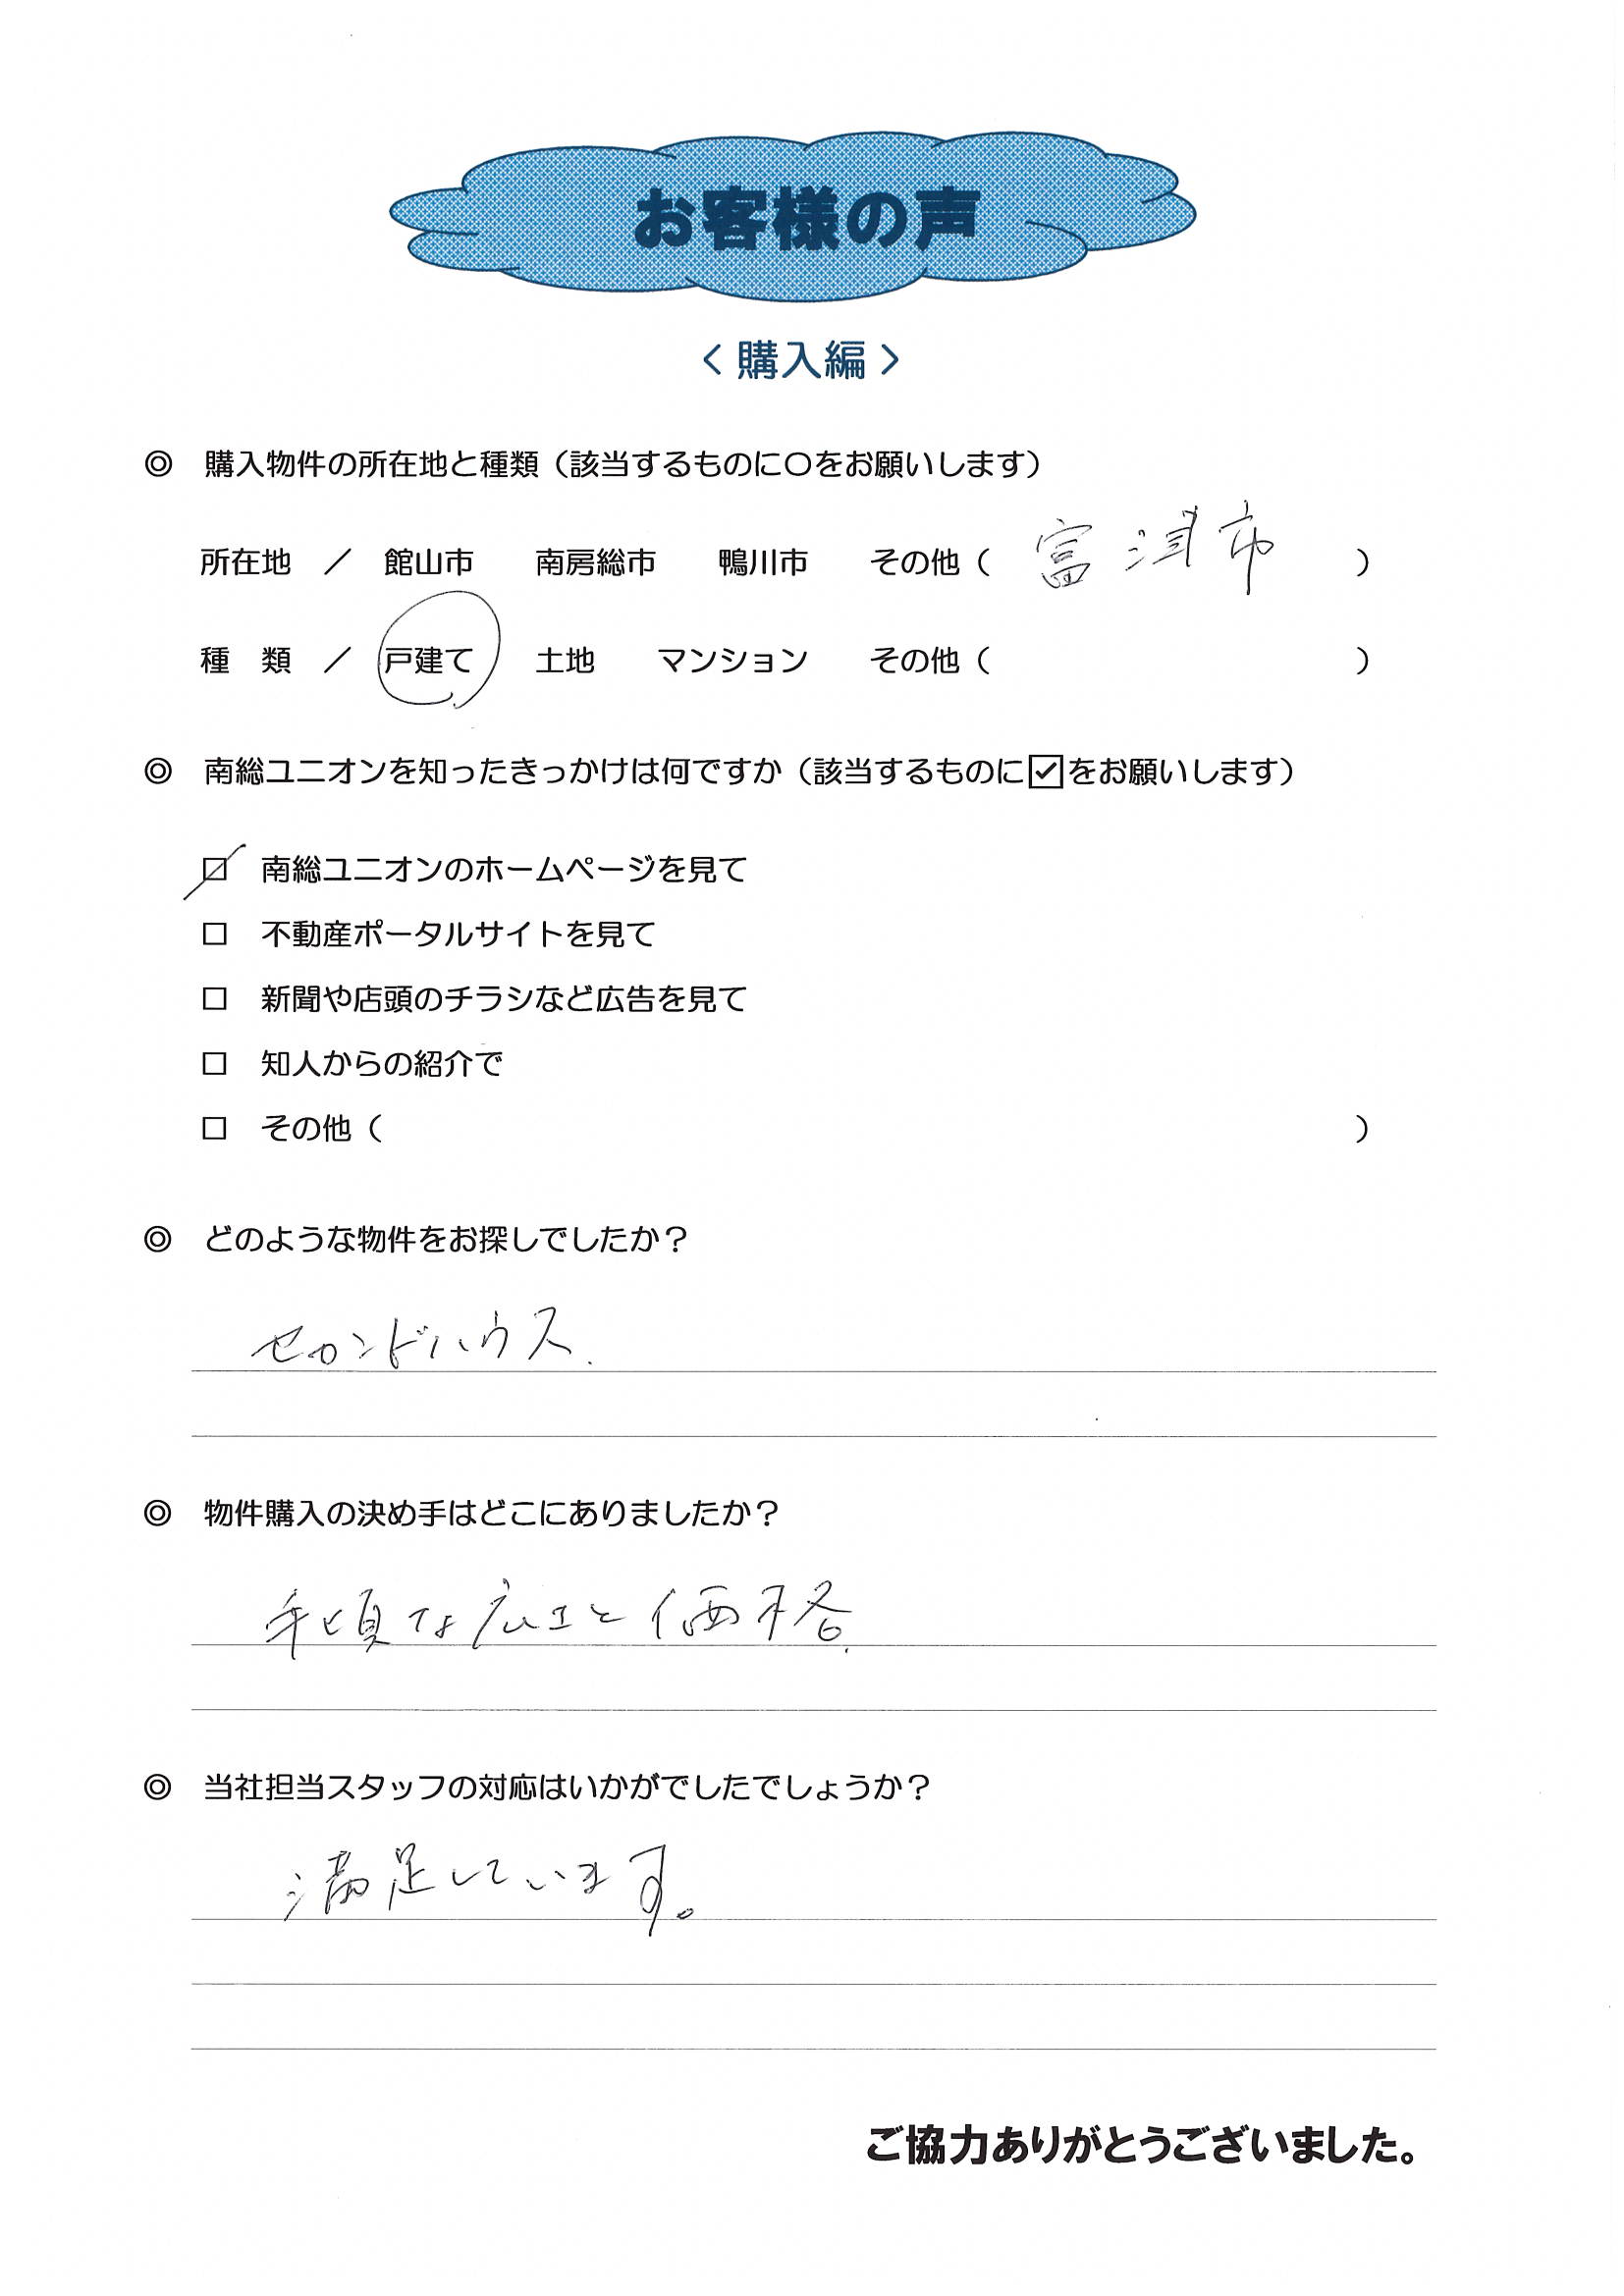 お客様の声
〈 購入編 〉
◎ 購入物件の所在地と種類（該当するものに〇をお願いします）
所在地 ／ 館山市 南房総市 鴨川市 その他（ 富津市 ）
種 類 ／ 戸建て 土地 マンション その他（ ）
◎ 南総ユニオンを知ったきっかけは何ですか（該当するものに☑をお願いします）
☑ 南総ユニオンのホームページを見て
□ 不動産ポータルサイトを見て
□ 新聞や店頭のチラシなど広告を見て
□ 知人からの紹介で
□ その他（ ）
◎ どのような物件をお探しでしたか？
セカンドハウス.
◎ 物件購入の決め手はどこにありましたか？
手頃な広さと価格.
◎ 当社担当スタッフの対応はいかがでしたでしょうか？
満足しています。
ご協力ありがとうございました。